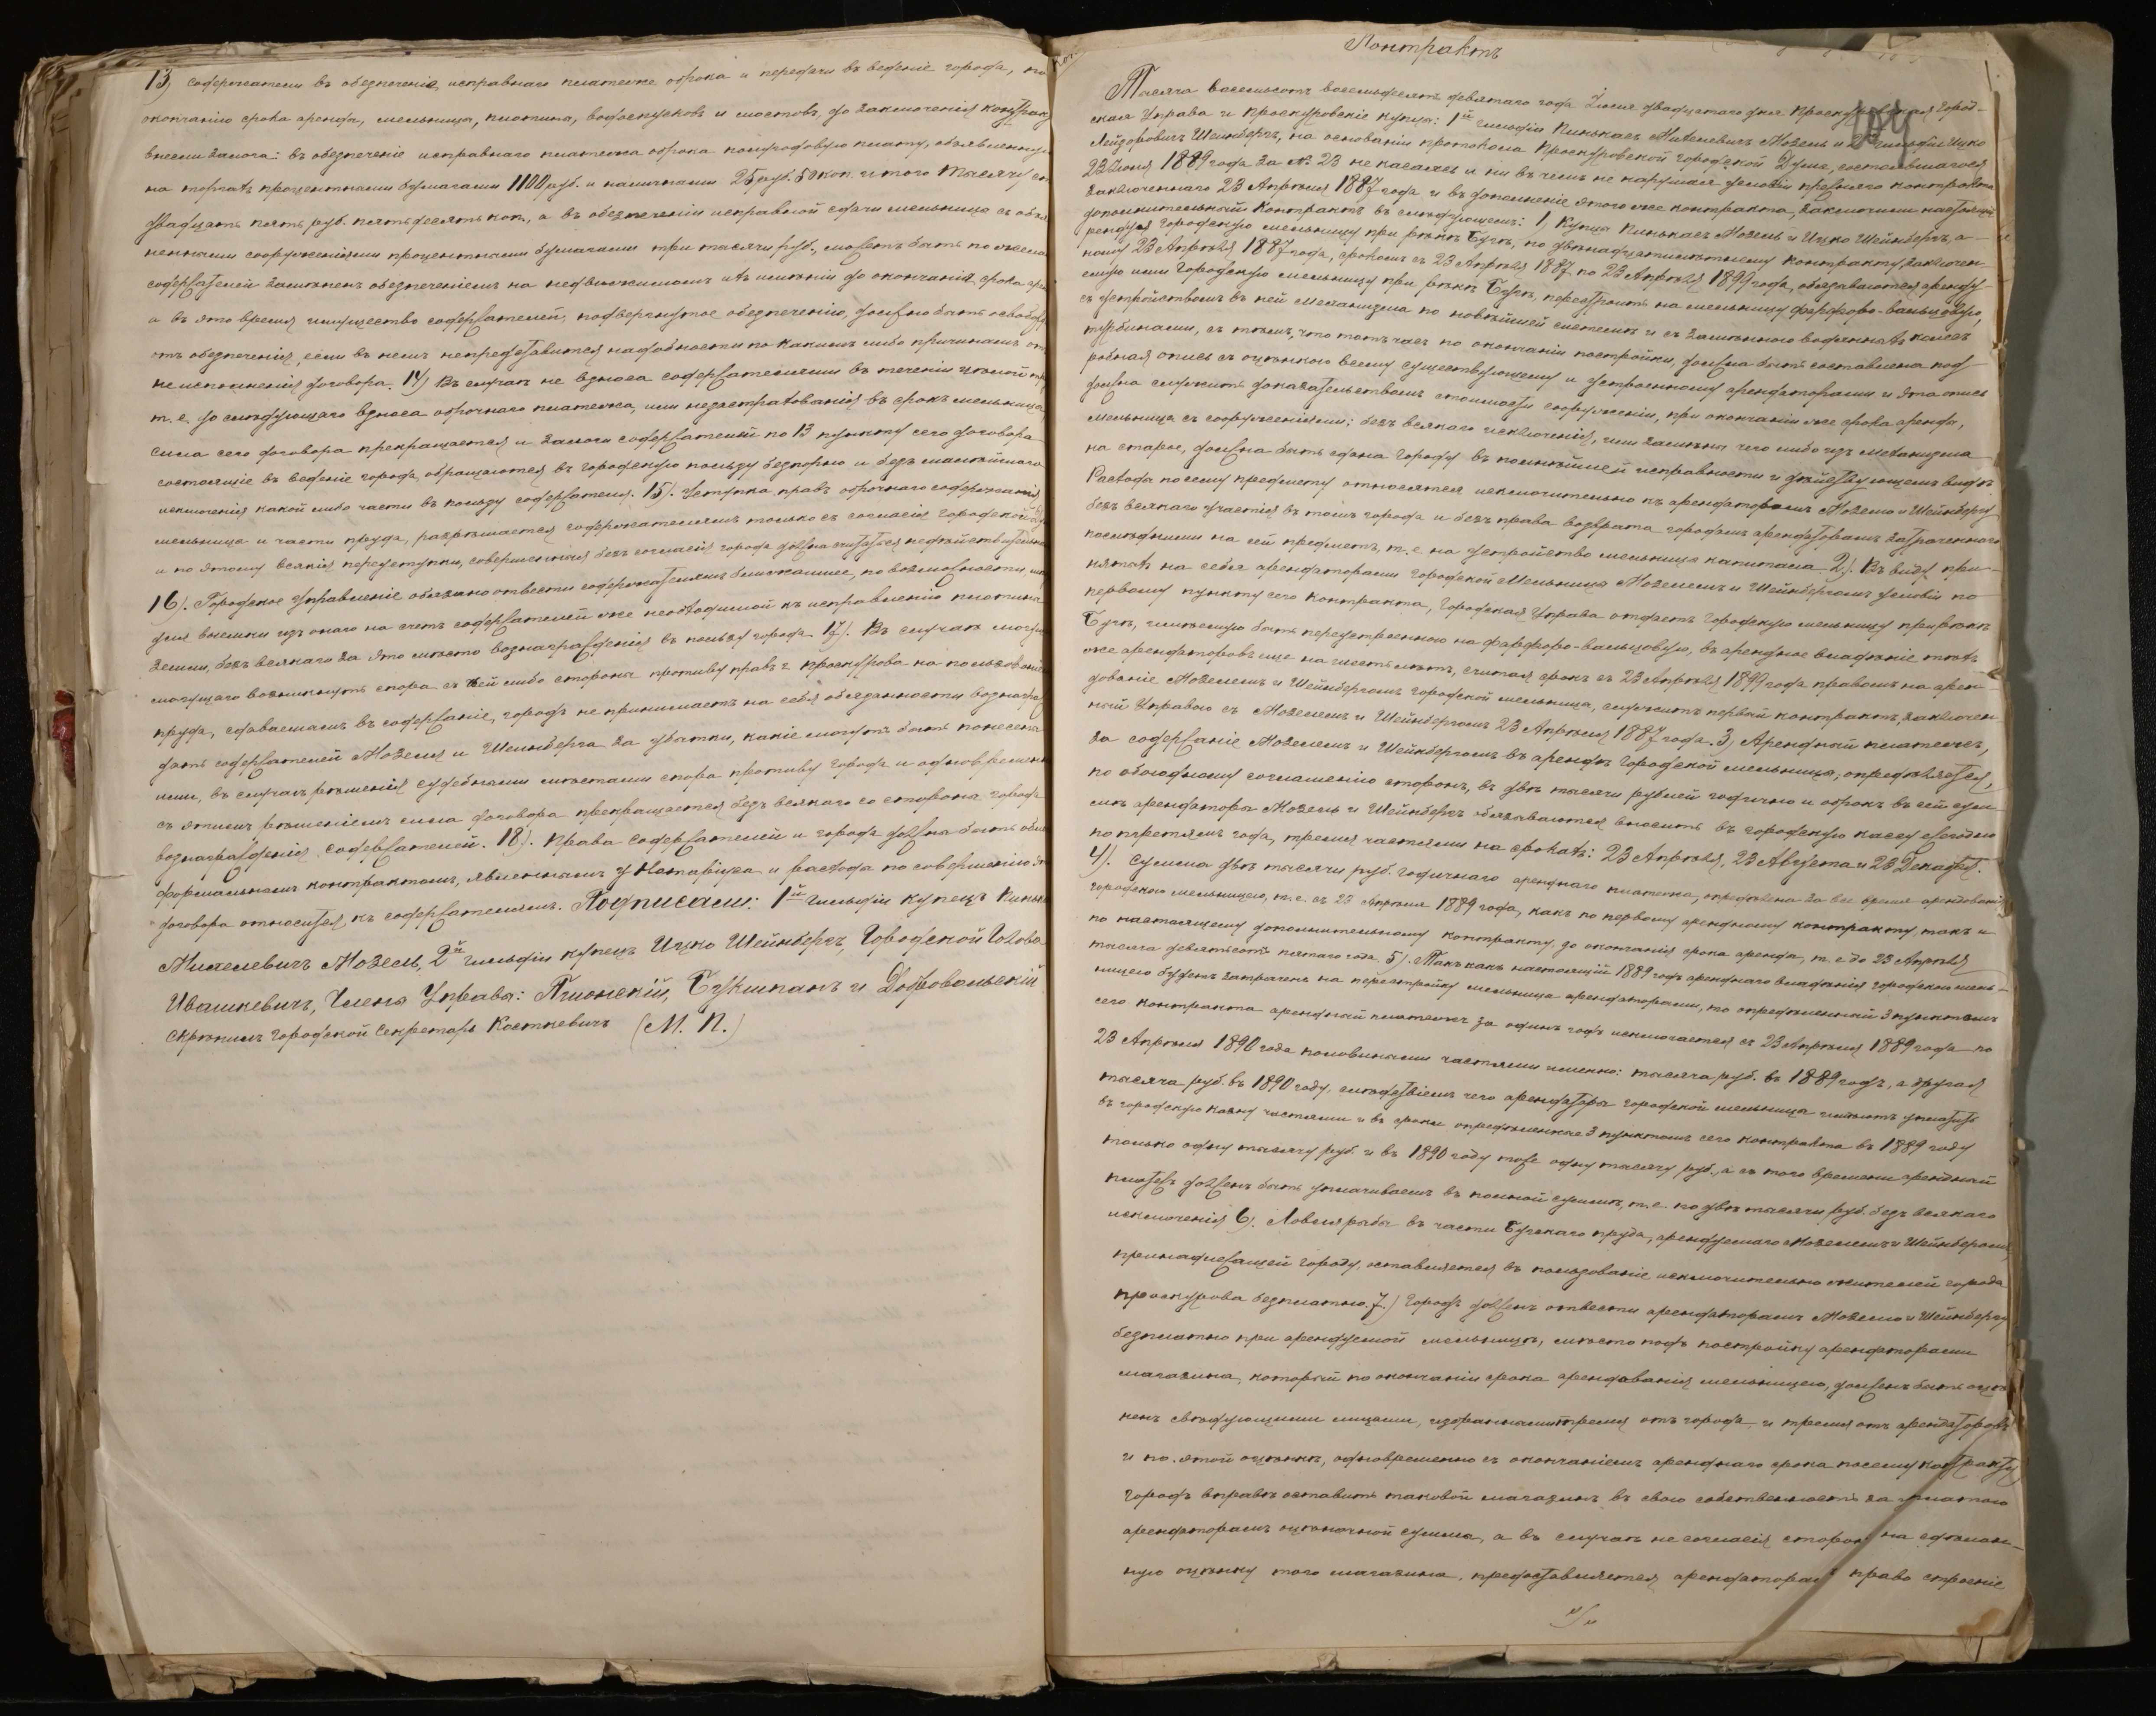 13) Содержатели въ обезпеченіе исправнаго платежа оброка и передачи въ веденіе города, по
окончанію срока аренды, мельницы, плотины, водоспусковъ и мостовъ, до заключенія контракт
внесли залога: въ обезпеченіе исправнаго платежа оброка полугодовую плату, объявленную
на торгахъ процентными бумагами 1100 руб. и наличными 25 руб. 50 коп. итого тысячу сто
двадцать пять руб. пятьдесятъ коп., а въ обезпеченіи исправной сдачи мельницы съ обозна
ченными сооруженіями процентными бумагами три тысячи руб., можетъ быть по желанію
содержателей замѣненъ обезпеченіемъ на недвижимомъ ихъ имѣніи до окончанія срока аренды
а въ это время имущество содержателей, подвергнутое обезпеченію, должно быть освобожд
отъ обезпеченія, если въ немъ непредставится надобности по какимъ либо причинамъ отъ
неисполненія договора. 14) Въ случаѣ не взноса содержателями въ теченіи цѣлой трети
т. е. до слѣдующаго взноса оброчнаго платежа, или незастрахованія въ срокъ мельницы,
сила сего договора прекращается и залоги содержателей по 13 пункту сего договора
состоящіе въ веденіе города, обращаются въ городскую пользу безспорно и безъ малѣйшаго
исключенія какой либо части въ пользу содержателя. 15). Уступка правъ оброчнаго содержанія
мельницы и части пруда, разрѣшается содержателямъ только съ согласія городской Думы
и по этому всякія переуступки, совершенныя безъ согласія города должна считаться недѣйствительна
16). Городское Управленіе обязано отвести содержателямъ ближайшее, по возможности, мѣсто
для выемки изъ онаго на счетъ содержателей же необходимой къ исправленію плотины
земли, безъ всякаго за это мѣсто вознагражденія въ пользу города. 17). Въ случаѣ могу
могущаго возникнуть спора съ чей либо стороны противу правъ г. Проскурова на пользованіе
пруда, сдаваемымъ въ содержаніе, городъ не принимаетъ на себя обязанности вознаграж
дать содержателей Мозеля и Шейнберга за убытки, какіе могутъ быть понесены
ими, въ случаѣ рѣшенія судебными мѣстами спора противу города и одновременно
съ этимъ рѣшеніемъ сила договора прекращается безъ всякаго со стороны города
вознагражденія содержателей. 18). Права содержателей и города должна быть обез
формальнымъ контрактомъ, явленнымъ у Нотаріуса и расхода по совершенію эт
договора относится къ содержателямъ. Подписали: 1й гильдіи купецъ Пинька
Михелевичъ Мозель, 2й гильдіи купецъ Ицко Шейнбергъ, Городской Голова
Ивашкевичъ, Члены Управы: Піонскій, Букшпанъ и Добровольскій
скрѣпилъ Городской Секретарь Косткевичъ (М. П.)
Контрактъ
Тысяча восемьсотъ восемьдесятъ девятаго года Іюля двадцатаго дня Проскуровская Город-
ская Управа и Проскуровскіе купцы: 1й гильдіи Пинькасъ Михелевичъ Мозель и 2й гильдіи Ицко
Лейзоровичъ Шейнбергъ, на основаніи протокола Проскуровской городской Думы, состоявшагося
22 Іюля 1889 года за № 23 не касаясь и ни въ чемъ не нарушая условій прежняго контракта
заключеннаго 23 Апрѣля 1887 года и въ дополненіе этого же контракта, заключили настоящій
дополнительный контрактъ въ слѣдующемъ: 1) Купцы Пинькасъ Мозель и Ицко Шейнбергъ, а-
рендуя городскую мельницу при рѣкѣ Бугъ, по двѣнадцатилѣтнему контракту, заключен-
ному 23 Апрѣля 1887 года, срокомъ съ 23 Апрѣля 1887 по 23 Апрѣля 1899 года, обязываются аренду-
емую ими городскую мельницу при рѣкѣ Бугѣ, перестроить на мельницу фарфоро-вальцовую,
съ устройствомъ въ ней механизма по новѣйшей системѣ и съ замѣною водяныхъ колесъ
турбинами, съ тѣмъ, что тотъ часъ по окончаніи постройки, должна быть составлена под
робная опись съ оцѣнкою всему существующему и устроенному арендаторами и эта опись
должна служить доказательствомъ стоимости сооруженіи, при окончаніи же срока аренды,
мельница съ сооруженіями; безъ всякаго исключенія, или замѣны чего либо изъ механизма
на старое, должна быть сдана городу въ полнѣйшей исправности и дѣйствующемъ видѣ.
Расхода по сему предмету относятся исключительно къ арендаторамъ Мозелю и Шейнбергу
безъ всякаго участія въ томъ города и безъ права возврата городомъ арендаторамъ затраченнаго
послѣдними на сей предметъ, т. е на устройство мельницы капитала. 2). Въ виду при-
нятыхъ на себя арендаторами городской мельницы Мозелемъ и Шейнбергомъ условіи по
первому пункту сего контракта, Городская Управа отдаетъ городскую мельницу при рѣкѣ
Бугѣ, имѣющую быть переустроенною на фарфоро-вальцовую, въ арендное владѣніе тѣхъ
же арендаторовъ еще на шесть лѣтъ, считая срокъ съ 23 Апрѣля 1899 года правомъ на арен-
дованіе Мозелемъ и Шейнбергомъ городской мельницы, служитъ первый контрактъ, заключен
ный Управою съ Мозелемъ и Шейнбергомъ 23 Апрѣля 1887 года. 3) Арендный платежъ,
за содержаніе Мозелемъ и Шейнбергомъ въ арендѣ городской мельницы, опредѣляется,
по обоюдному соглашенію сторонъ, въ двѣ тысячи рублей годично и оброкъ въ сей сум-
мѣ арендаторы Мозель и Шейнбергъ обязываются вносить въ городскую кассу ежегодно
по третямъ года, тремя частями на срокахъ: 23 Апрѣля, 23 Августа и 23 Декабря.
4). Сумма двѣ тысячи руб. годичнаго аренднаго платежа, опредѣлена за все время арендованія
городскою мельницею, т. е. съ 23 Апрѣля 1889 года, какъ по первому арендному контракту, такъ и
по настоящему дополнительному контракту, до окончанія срока аренды, т. е до 23 Апрѣля
тысяча девятьсотъ пятаго года. 5). Такъ какъ настоящій 1889 годъ аренднаго владѣнія городскою мель-
ницею будетъ затраченъ на перестройку мельницы арендаторами, то опредѣленный 3 пунктомъ
сего контракта арендный платежъ за одинъ годъ исключается съ 23 Апрѣля 1889 года по
23 Апрѣля 1890 года половинными частями именно: тысяча руб. въ 1889 году, а другая
тысяча руб. въ 1890 году, слѣдствіемъ чего арендаторы городской мельницы имѣютъ уплатить
въ городскую казну частями и въ сроки опредѣленные 3 пунктомъ сего контракта въ 1889 году
только одну тысячу руб. и въ 1890 году тоже одну тысячу руб., а съ того времени арендный
платежъ долженъ быть уплачиваемъ въ полной суммѣ, т. е. по двѣ тысячи руб. безъ всякаго
исключенія. 6). Ловля рыбы въ части Бугскаго пруда, арендуемаго Мозелемъ и Шейнбергомъ,
принадлежащей городу, оставляется въ пользованіе исключительно жителей города
Проскурова безплатно. 7.) Городъ долженъ отвести арендаторамъ Мозелю и Шейнбергу
безплатно при арендуемой мельницѣ, мѣсто подъ постройку арендаторами
магазина, который по окончаніи срока арендованія мельницею, долженъ быть оцѣ
ненъ свѣдующими лицами, избранными тремя отъ города и тремя отъ арендаторовъ
и по этой оцѣнкѣ, одновременно съ окончаніемъ аренднаго срока посему контракту
городъ вправѣ оставить таковой магазинъ въ свою собственность за уплатою
арендаторамъ оцѣночной суммы, а въ случаѣ не согласія сторонъ на сдѣлан-
ную оцѣнку того магазина, предоставляется арендаторамъ право строеніе